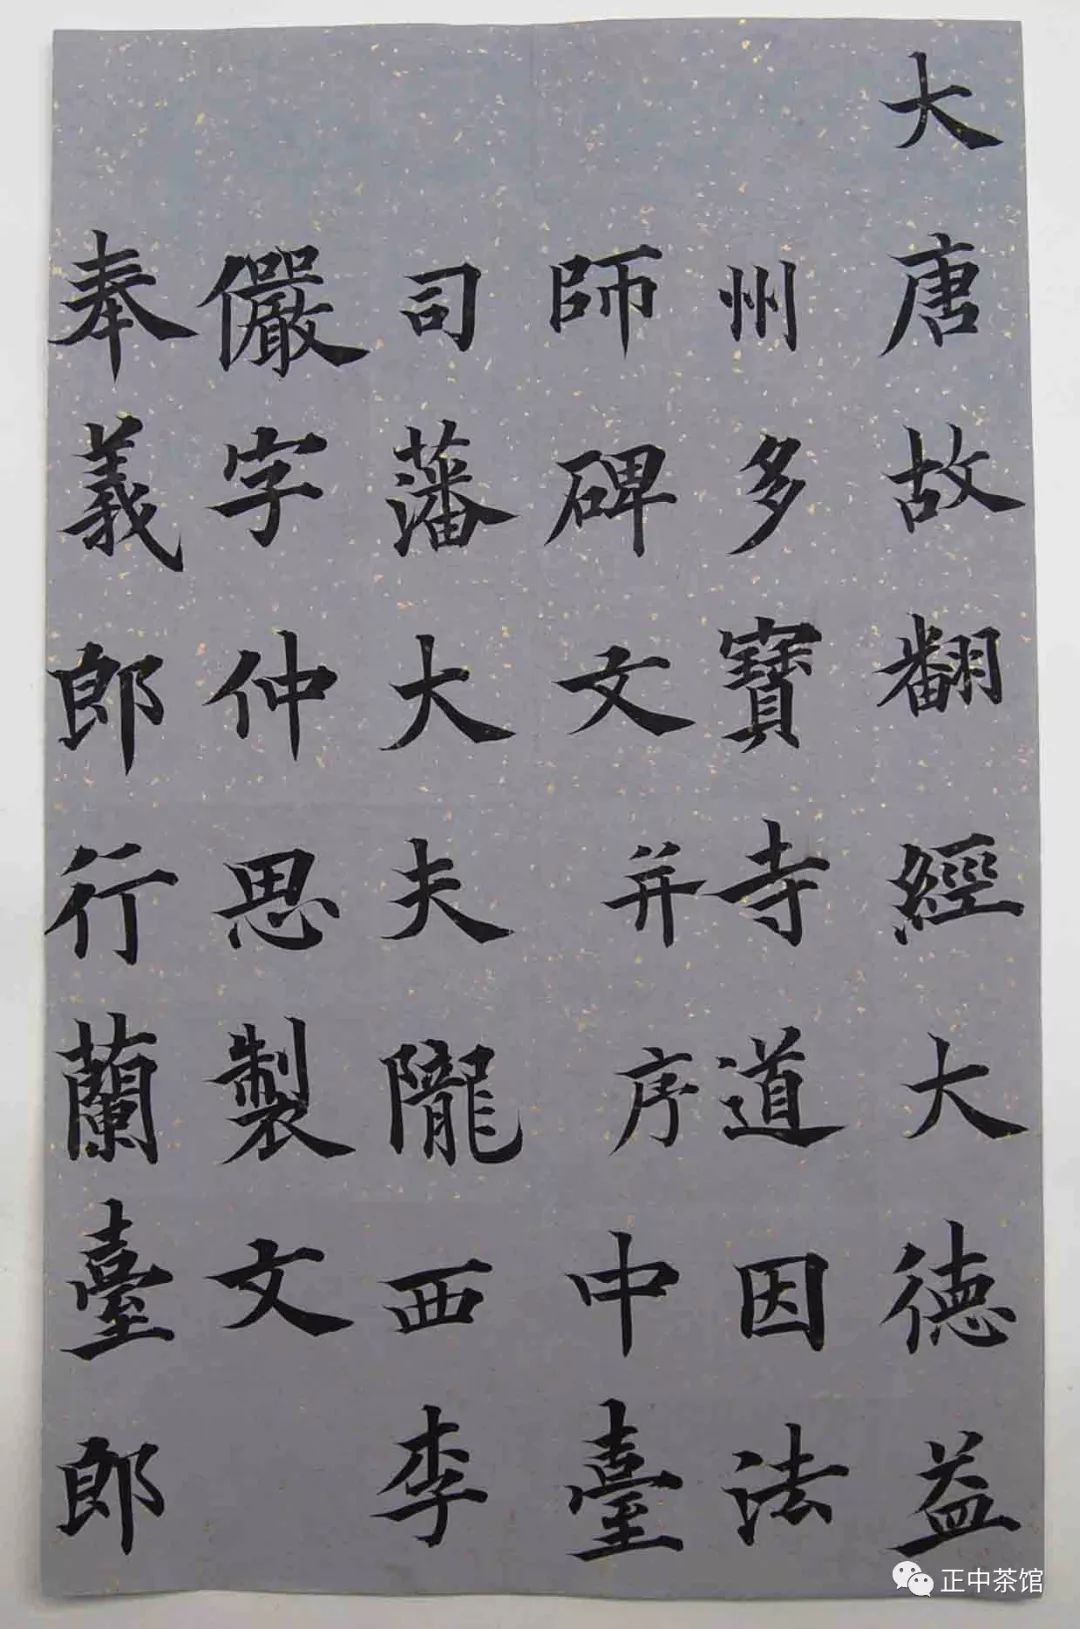 大唐故翻經大德益
州多寶寺道因法
師碑文并序中臺
司藩大夫隴西李
儼字仲思製文
奉義郎行蘭臺郎
正中茶馆